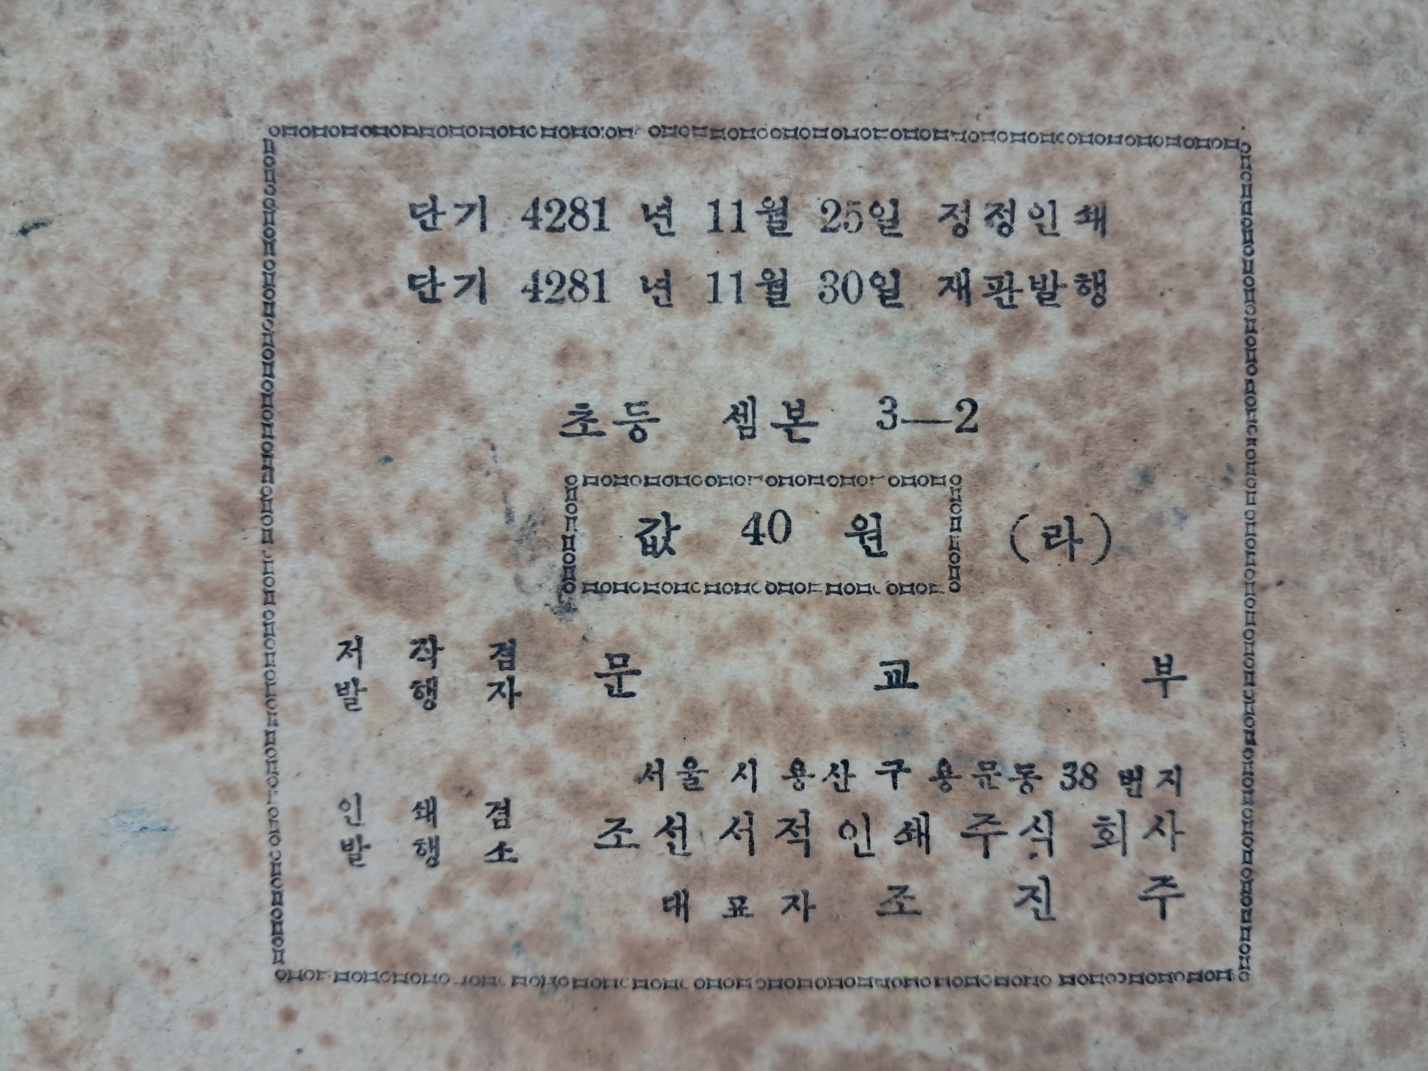 단기 4281 년 11월 25일 정정인쇄
단기 4281 년 11월 30일 재판발행
초등 셈본 3—2
값 40 원 (라)
저작겸
발행자 문교부
서울시 용산구 용문동 38 번지
인쇄겸
발행소 조선서적인쇄주식회사
대표자 조진주